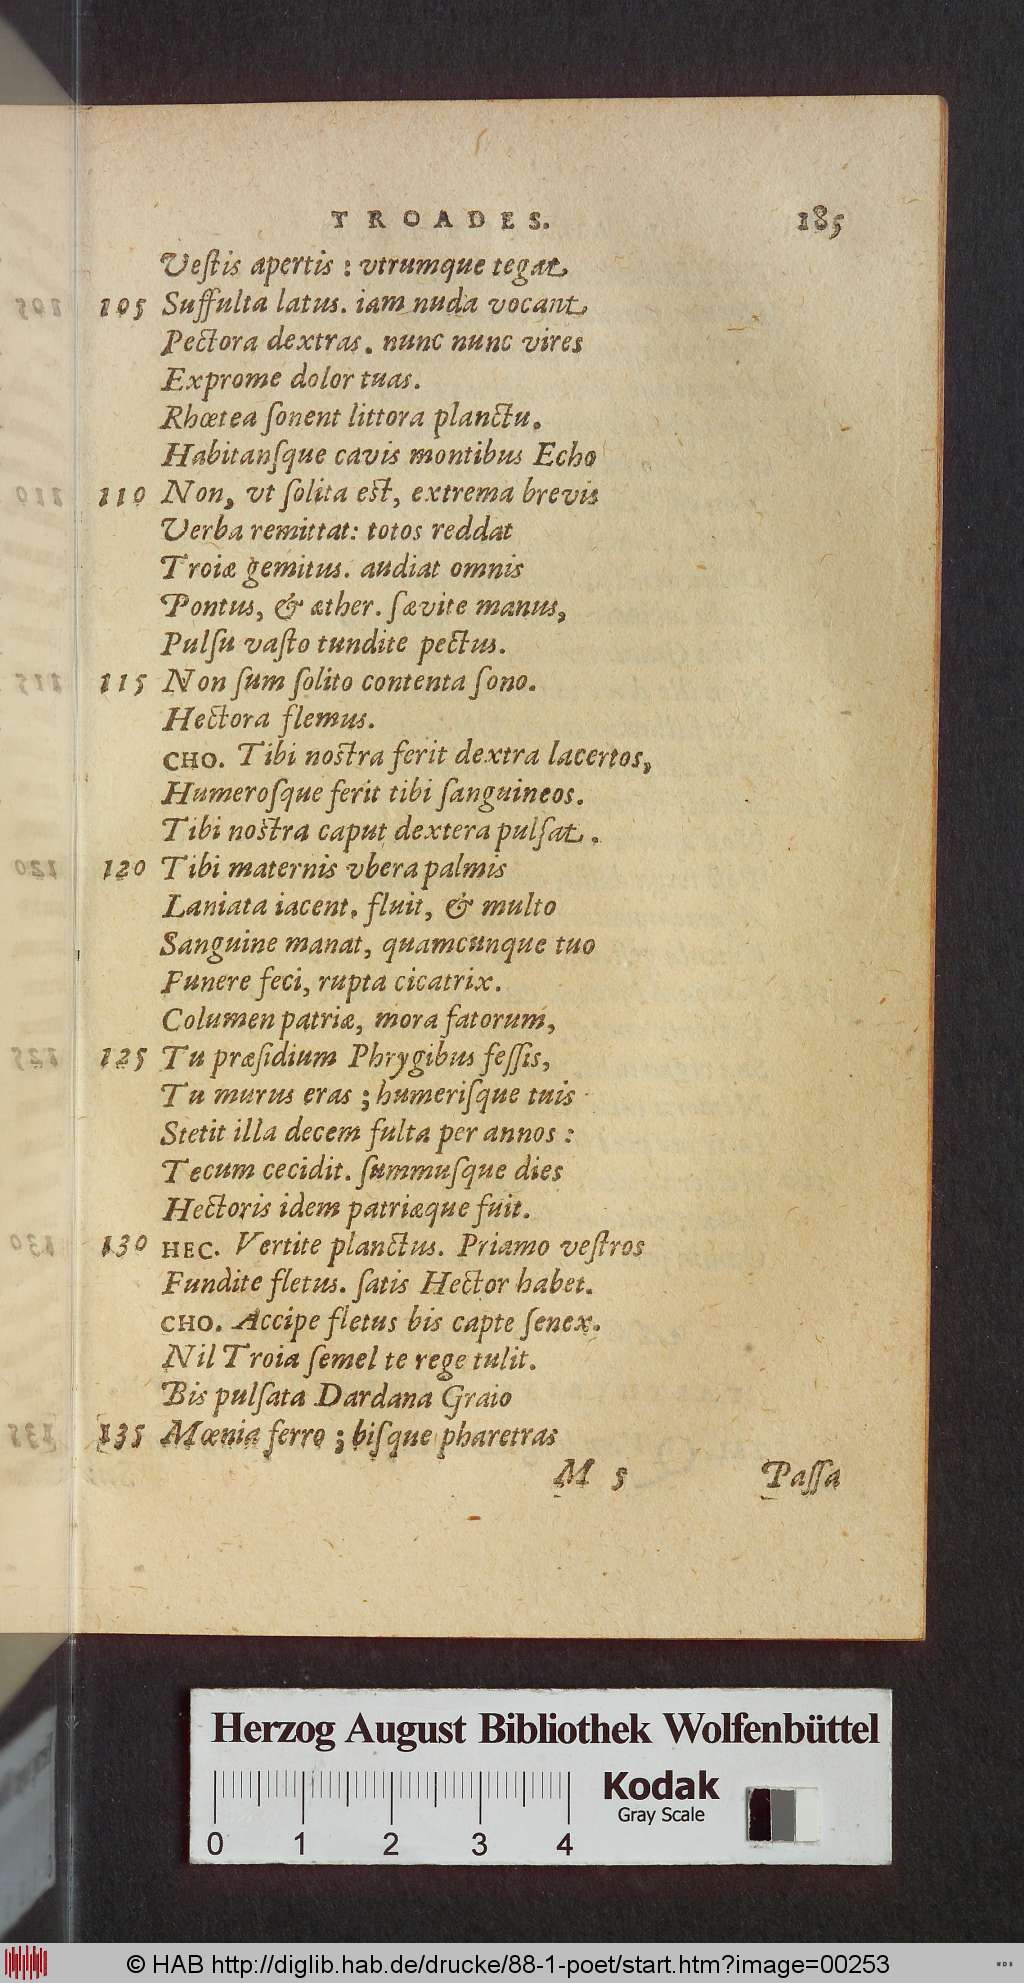 TROADES. 185
Veſtis apertis : vtrumque tegat
105 Suffulta latus. iam nuda vocant
Pectora dextras. nunc nunc vires
Exprome dolor tuas.
Rhœtea ſonent littora planctu.
Habitanſque cavis montibus Echo
110 Non, vt ſolita est, extrema brevis
Verba remittat: totos reddat
Troiæ gemitus. audiat omnis
Pontus, & æther. ſævite manus,
Pulſu vaſto tundite pectus.
115 Non ſum ſolito contenta ſono.
Hectora flemus.
CHO. Tibi nostra ferit dextra lacertos,
Humeroſque ferit tibi ſanguineos.
Tibi nostra caput dextera pulſat.
120 Tibi maternis vbera palmis
Laniata iacent. fluit, & multo
Sanguine manat, quamcunque tuo
Funere feci, rupta cicatrix.
Columen patriæ, mora fatorum,
125 Tu præſidium Phrygibus feſſis,
Tu murus eras ; humeriſque tuis
Stetit illa decem fulta per annos :
Tecum cecidit. ſummuſque dies
Hectoris idem patriæque fuit.
130 HEC. Vertite planctus. Priamo veſtros
Fundite fletus. ſatis Hector habet.
CHO. Accipe fletus bis capte ſenex.
Nil Troia ſemel te rege tulit.
Bis pulſata Dardana Graio
135 Mœnia ferro ; biſque pharetras
M 5 Paſſa
Herzog August Bibliothek Wolfenbüttel
Kodak
Gray Scale
0 1 2 3 4
© HAB http://diglib.hab.de/drucke/88-1-poet/start.htm?image=00253